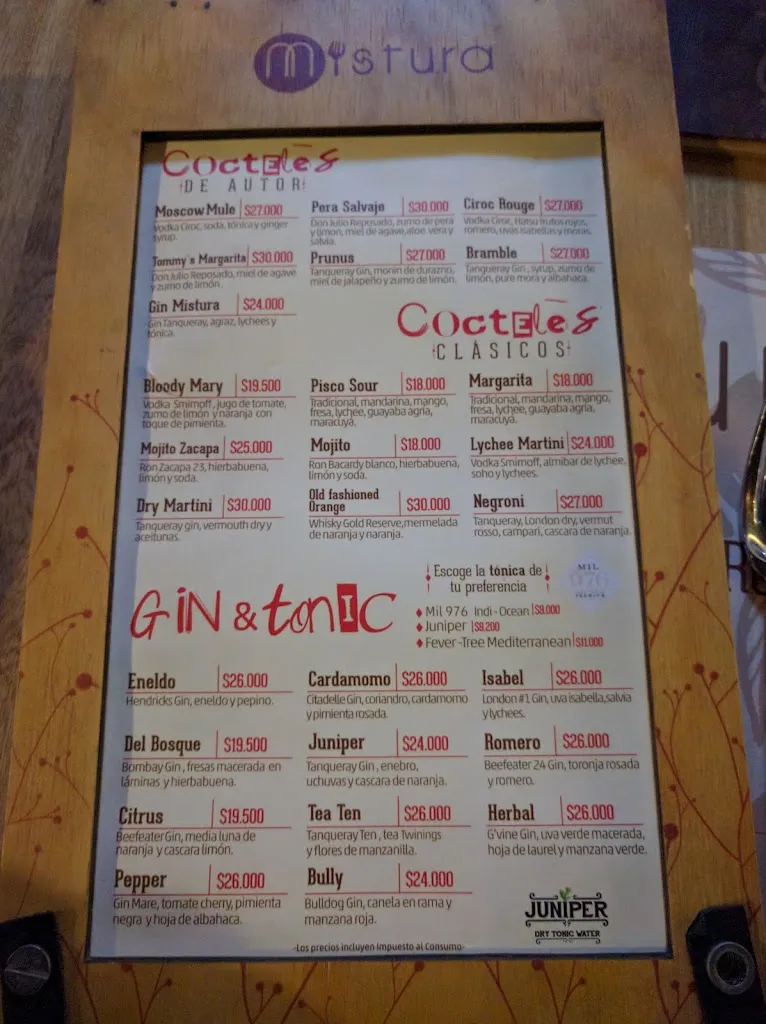 mistura
Cocteles
DE AUTOR
Moscow Mule $27.000
Vodka Ciroc, soda, tónica y ginger
syrup.
Pera Salvaje $30.000
Don Julio Reposado, zumo de pera
y limon, miel de agave, aloe vera y
salvia.
Ciroc Rouge $27.000
Vodka Ciroc, Hatsu frutos rojos,
romero, uvas isabellas y moras.
Tommy's Margarita $30.000
Don Julio Reposado, miel de agave
y zumo de limón.
Prunus $27.000
Tanqueray Gin, monin de durazno,
miel de jalapeño y zumo de limón.
Bramble $27.000
Tanqueray Gin, syrup, zumo de
limón, pure mora y albahaca.
Gin Mistura $24.000
Gin Tanqueray, agraz, lychees y
tónica.
Cocteles
CLÁSICOS
Bloody Mary $19.500
Vodka Smirnoff, jugo de tomate,
zumo de limón y naranja con
toque de pimienta.
Pisco Sour $18.000
Tradicional, mandarina, mango,
fresa, lychee, guayaba agria,
maracuya.
Margarita $18.000
Tradicional, mandarina, mango,
fresa, lychee, guayaba agria,
maracuya.
Mojito Zacapa $25.000
Ron Zacapa 23, hierbabuena,
limón y soda.
Mojito $18.000
Ron Bacardy blanco, hierbabuena,
limón y soda.
Lychee Martini $24.000
Vodka Smirnoff, almibar de lychee,
soho y lychees.
Dry Martini $30.000
Tanqueray gin, vermouth dry y
aceitunas.
Old fashioned
Orange $30.000
Whisky Gold Reserve, mermelada
de naranja y naranja.
Negroni $27.000
Tanqueray, London dry, vermut
rosso, campari, cascara de naranja.
GiN & tonic
Escoge la tónica de
tu preferencia
MIL
976
PREMIUM
Mil 976 Indi-Ocean $9.000
Juniper $8.200
Fever-Tree Mediterranean $11.000
Eneldo $26.000
Hendricks Gin, eneldo y pepino.
Cardamomo $26.000
Citadelle Gin, coriandro, cardamomo
y pimienta rosada.
Isabel $26.000
London #1 Gin, uva isabella, salvia
y lychees.
Del Bosque $19.500
Bombay Gin, fresas macerada en
láminas y hierbabuena.
Juniper $24.000
Tanqueray Gin, enebro,
uchuvas y cascara de naranja.
Romero $26.000
Beefeater 24 Gin, toronja rosada
y romero.
Citrus $19.500
Beefeater Gin, media luna de
naranja y cascara limón.
Tea Ten $26.000
Tanqueray Ten, tea Twinings
y flores de manzanilla.
Herbal $26.000
G'vine Gin, uva verde macerada,
hoja de laurel y manzana verde.
Pepper $26.000
Gin Mare, tomate cherry, pimienta
negra y hoja de albahaca.
Bully $24.000
Bulldog Gin, canela en rama y
manzana roja.
JUNIPER
DRY TONIC WATER
-Los precios incluyen Impuesto al Consumo-